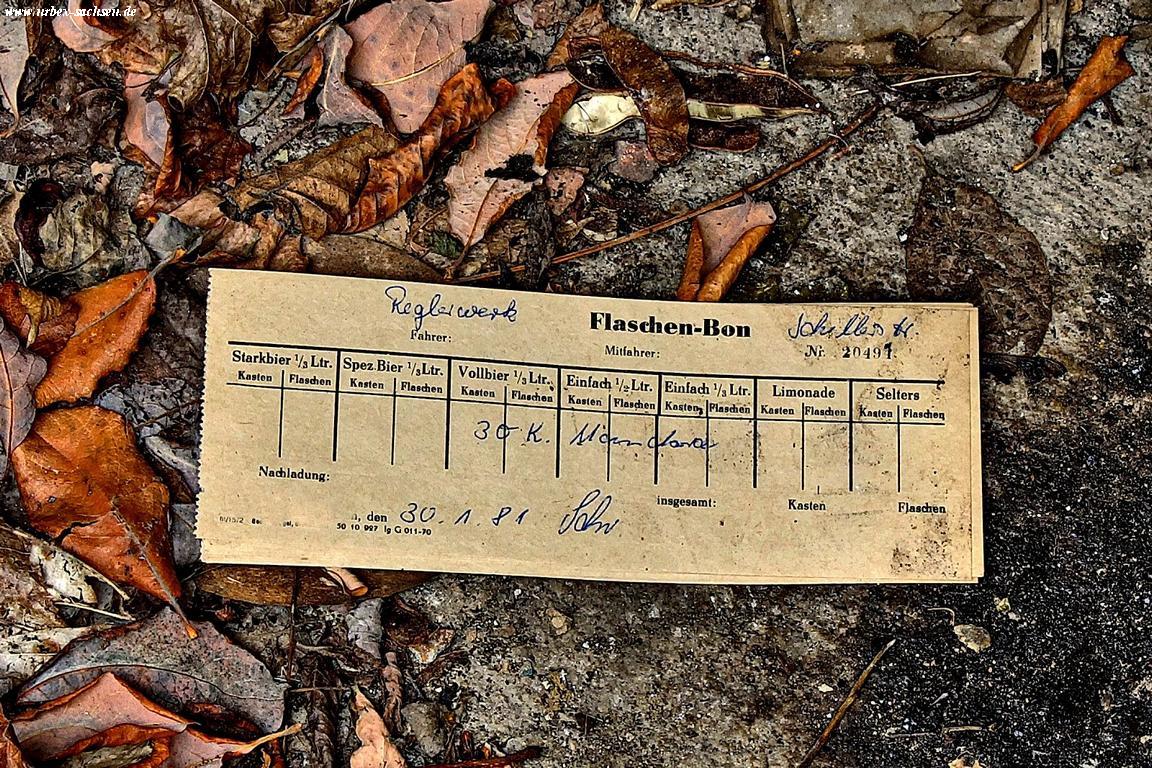 www.urbex-sachsen.de
Reglerwerk Flaschen-Bon Schillerstr.
Fahrer: Mitfahrer: Nr. 20491
Starkbier 1/3 Ltr. Spez.Bier 1/3 Ltr. Vollbier 1/3 Ltr. Einfach 1/2 Ltr. Einfach 1/3 Ltr. Limonade Selters
Kasten Flaschen Kasten Flaschen Kasten Flaschen Kasten Flaschen Kasten Flaschen Kasten Flaschen Kasten Flaschen
30 K.
Nachladung: insgesamt: Kasten Flaschen
, den 30.1.81
50 10 997 Ig G 011-70